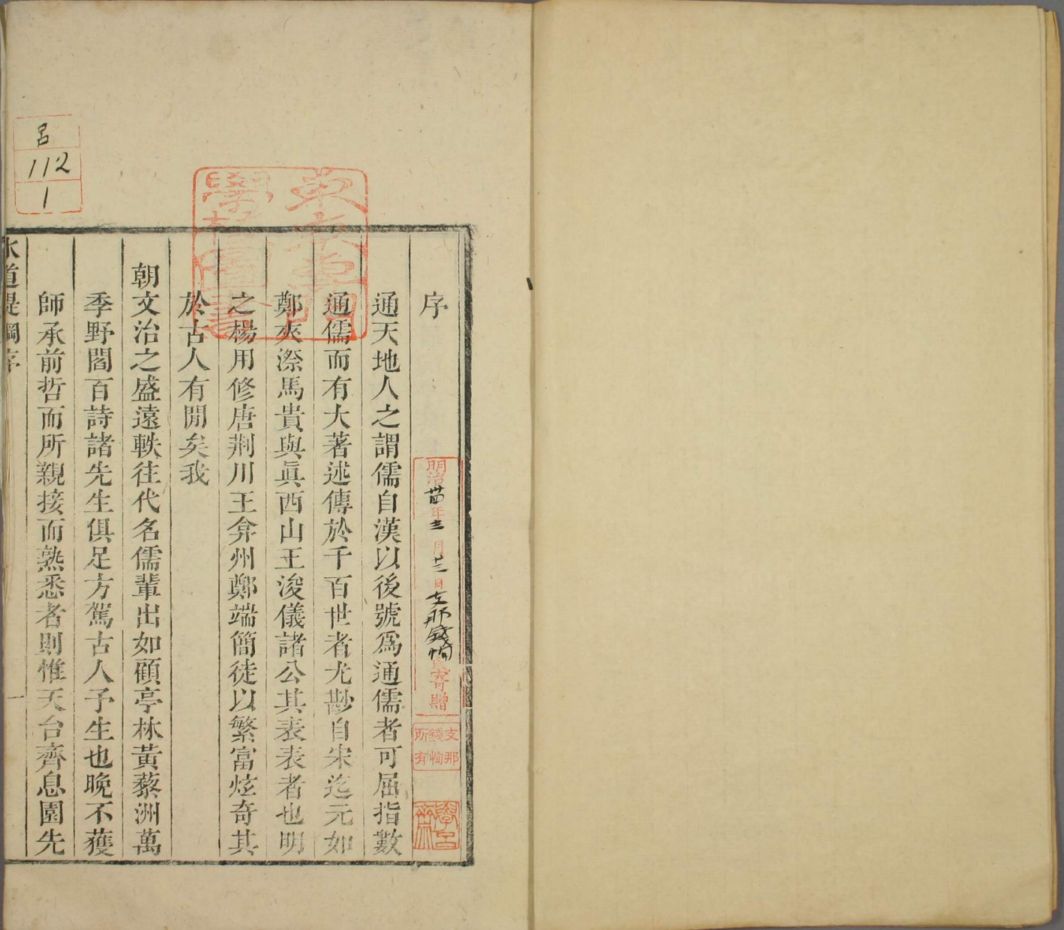 序
通天地人之謂儒自漢以後號爲通儒者可屈指數
通儒而有大著述傳於千百世者尤尠自宋迄元如
鄭夾漈馬貴與眞西山王浚儀諸公其表表者也明
之楊用修唐荆川王弇州鄭端簡徒以繁富炫奇其
於古人有閒矣我
朝文治之盛遠軼往代名儒輩出如顧亭林黃藜洲萬
季野閻百詩諸先生俱足方駕古人予生也晚不獲
師承前哲而所親接而熟悉者則惟天台齊息園先
水道提綱序
一
明治卅四年三月廿二日支那錢恂寄贈
支那
錢恂
所有
呂
112
1